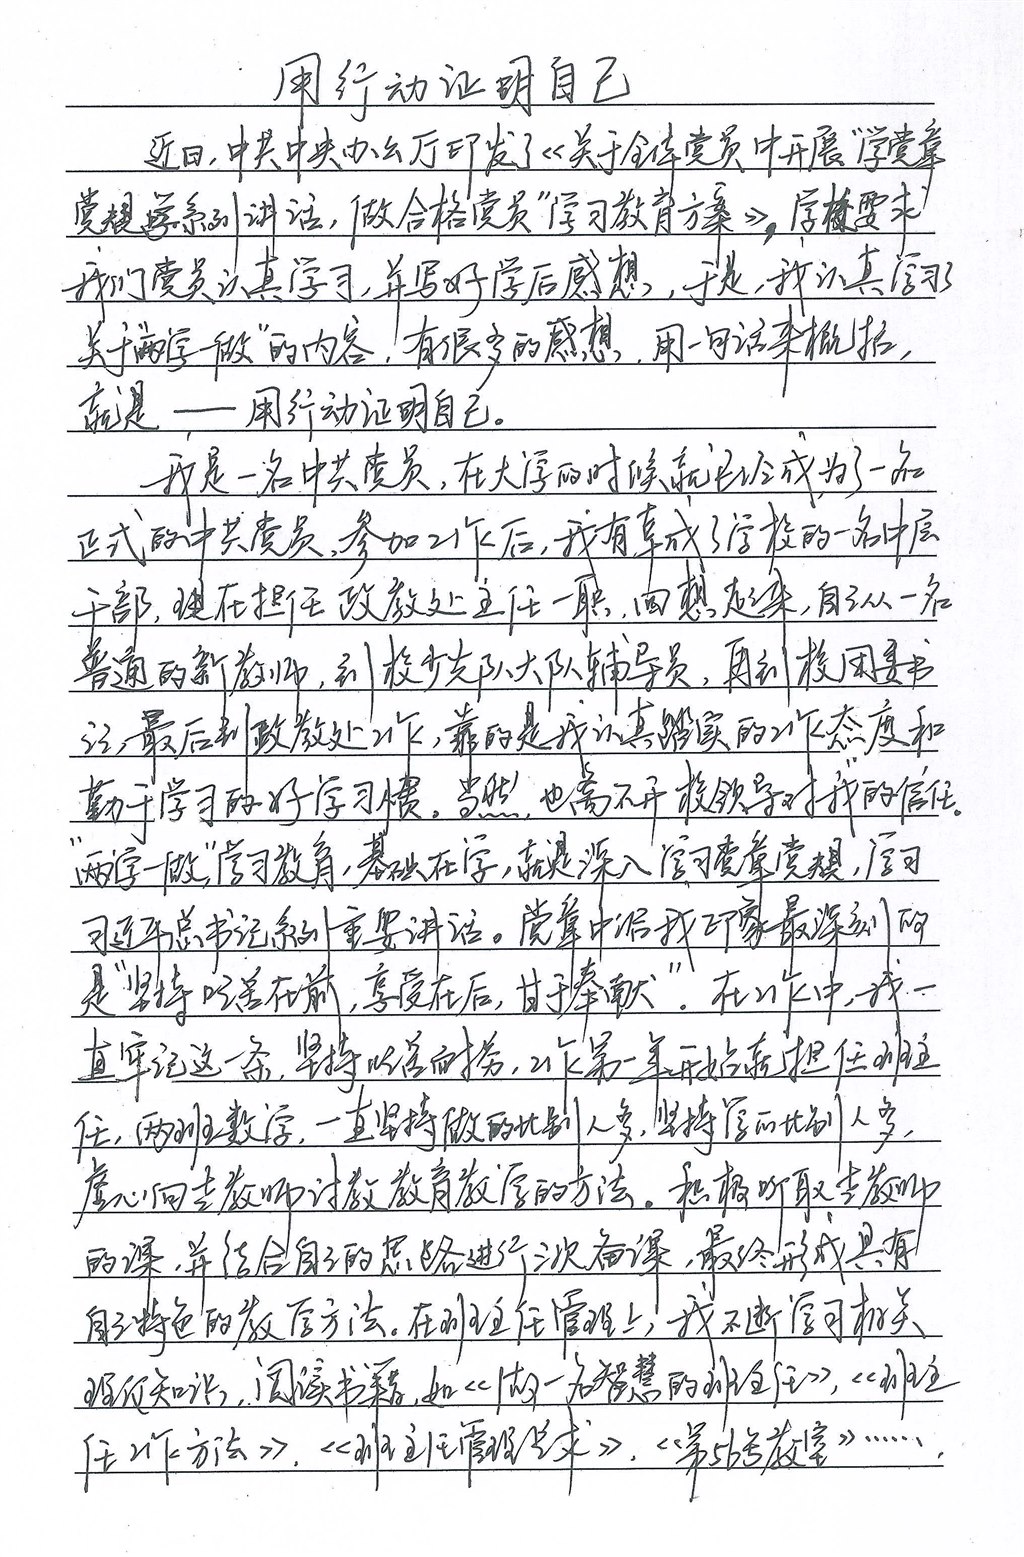 用行动证明自己
近日，中共中央办公厅印发了《关于全体党员中开展“学党章
党规学系列讲话，做合格党员”学习教育方案》，学校要求
我们党员认真学习，并写好学后感想，于是，我认真学习了
关于“两学一做”的内容，有很多的感想，用一句话来概括，
就是——用行动证明自己。
我是一名中共党员，在大学的时候就已经成为了一名
正式的中共党员，参加工作后，我有幸成了学校的一名中层
干部，现在担任政教处主任一职，回想起来，自己从一名
普通的新教师，到校少先队大队辅导员，再到校团委书
记，最后到政教处工作，靠的是我认真踏实的工作态度和
勤于学习的好学习惯。当然，也离不开校领导对我的信任。
“两学一做”，学习教育，基础在学，就是深入学习党章党规，学习
习近平总书记系列重要讲话。党章中给我印象最深刻的
是“坚持吃苦在前，享受在后，甘于奉献”。在工作中，我一
直牢记这一条，坚持吃苦耐劳，工作第一年开始就担任班主
任，两班数学，一直坚持做的比别人多，坚持学的比别人多，
虚心向老教师讨教教育教学的方法。积极听取老教师
的课，并结合自己的思路进行二次备课，最终形成具有
自己特色的教学方法。在班主任管理上，我不断学习相关
理论知识，阅读书籍，如《做一名智慧的班主任》，《班主
任工作方法》，《班主任管理艺术》，《第56号教室》……，